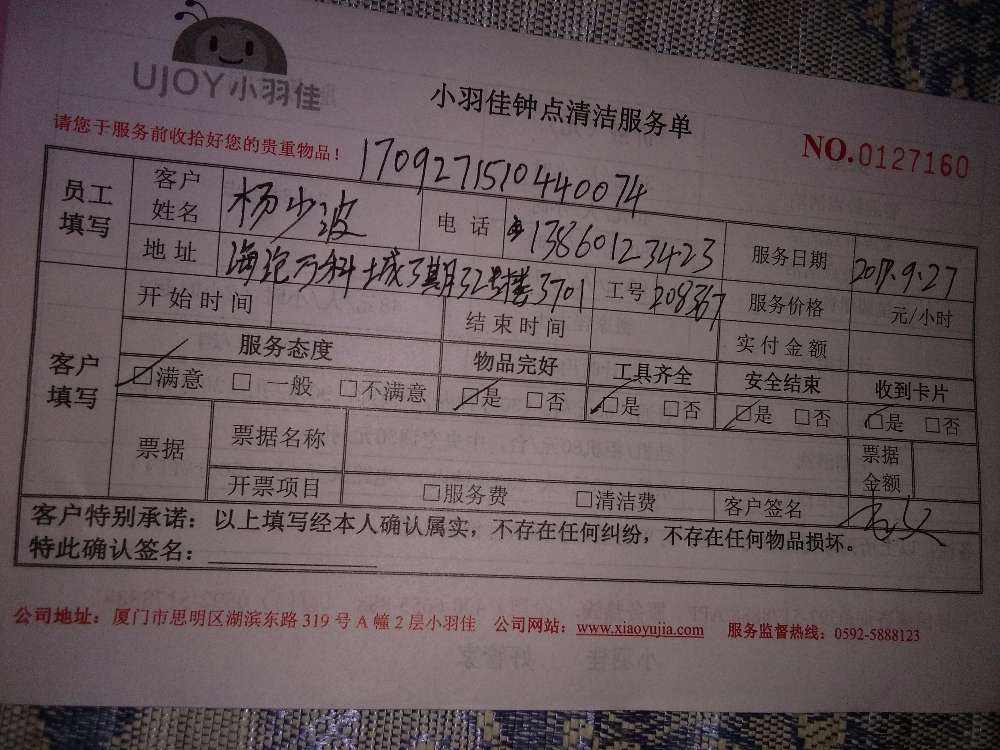 UJOY小羽佳
小羽佳钟点清洁服务单
请您于服务前收拾好您的贵重物品！
NO.0127160
1709271510440074
员工填写 客户姓名 杨少波 电话 13860123423 服务日期 2017.9.27
地址 海沧万科城3期32号楼3701 工号 208367 服务价格 元/小时
客户填写 开始时间 结束时间 实付金额
服务态度 物品完好 工具齐全 安全结束 收到卡片
□满意 □一般 □不满意 □是 □否 □是 □否 □是 □否 □是 □否
票据 票据名称 票据金额
开票项目 □服务费 □清洁费 客户签名
客户特别承诺：以上填写经本人确认属实，不存在任何纠纷，不存在任何物品损坏。
特此确认签名：
公司地址：厦门市思明区湖滨东路319号A幢2层小羽佳 公司网站：www.xiaoyujia.com 服务监督热线：0592-5888123